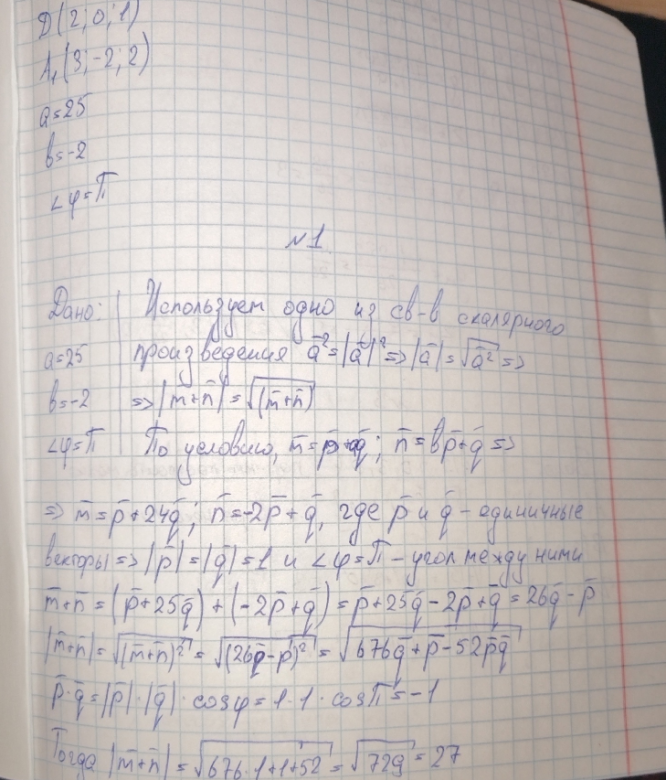 D(2; 0; 1)
A₁(3; -2; 2)
a=25
b=-2
∠φ=π
№1
Дано: Использует одно из св-в скалярного
a=25 произведения ā²=|ā|² => |ā|=√ā² =>
b=-2 => |m̄+n̄|=√(m̄+n̄)
∠φ=π По условию, m̄=p̄+aq̄; n̄=bp̄+q̄ =>
=> m̄=p̄+24q̄; n̄=-2p̄+q̄, где p̄ и q̄ - единичные
векторы => |p̄|=|q̄|=1 и ∠φ=π - угол между ними
m̄+n̄=(p̄+25q̄)+(-2p̄+q̄)=p̄+25q̄-2p̄+q̄=26q̄-p̄
|m̄+n̄|=√(m̄+n̄)²=√(26q̄-p̄)²=√676q̄+p̄-52p̄q̄
p̄·q̄=|p̄|·|q̄|·cosφ=1·1·cosπ=-1
Тогда |m̄+n̄|=√676·1+1+52=√729=27